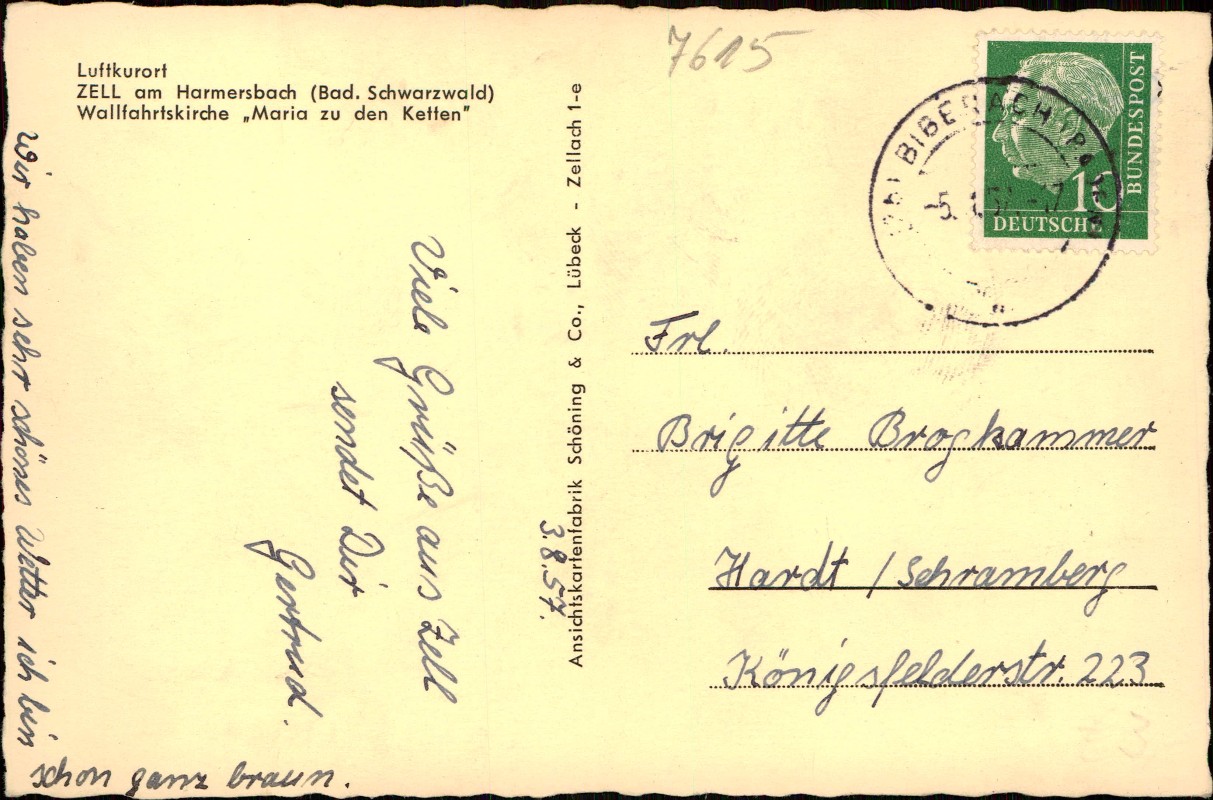 Luftkurort
ZELL am Harmersbach (Bad. Schwarzwald)
Wallfahrtskirche „Maria zu den Ketten"
7615
BUNDESPOST
10
DEUTSCHE
BIBERACH
3.8.57.
Viele Grüße aus Zell
sendet Dir
Gertrud.
Wir haben sehr schönes Wetter ich bin
schon ganz braun.
Ansichtskartenfabrik Schöning & Co., Lübeck - Zellach 1-e
Frl.
Brigitte Brogkammer
Hardt / Schramberg
Königsfelderstr. 223